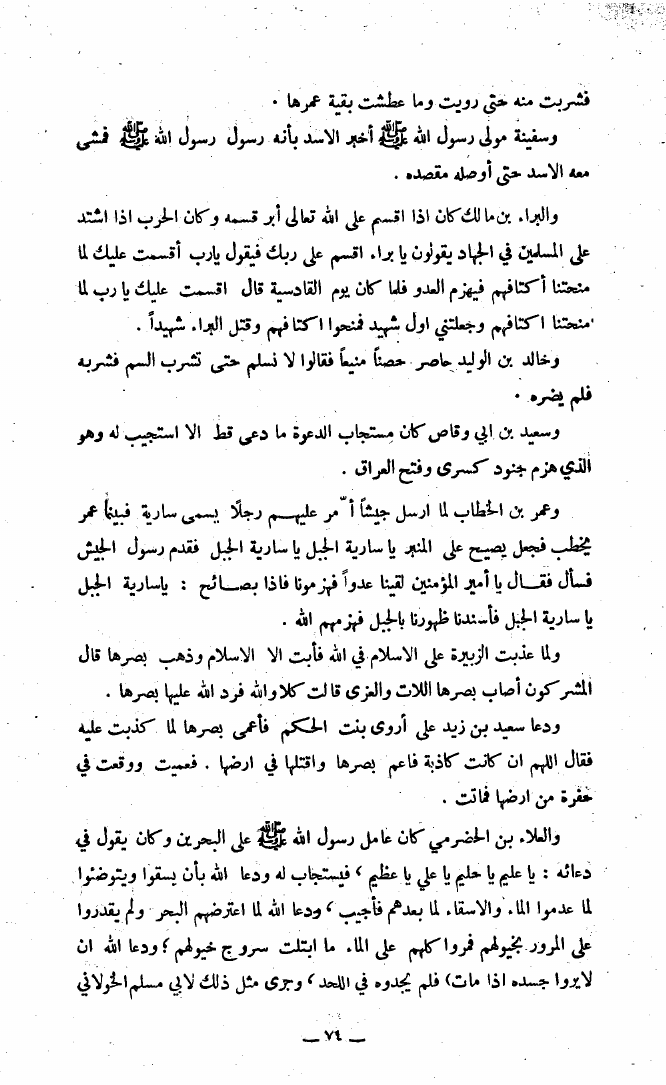 فشربت منه حتى رويت وما عطشت بقية عمرها .
وسفينة مولى رسول الله ﷺ أخبر الاسد بأنه رسول رسول الله ﷺ فمشى
معه الاسد حتى أوصله مقصده .
والبراء بن مالك كان اذا اقسم على الله تعالى أبر قسمه وكان الحرب اذا اشتد
على المسلمين في الجهاد يقولون يا براء اقسم على ربك فيقول يارب أقسمت عليك لما
منحتنا أكتافهم فيهزم العدو فلما كان يوم القادسية قال اقسمت عليك يا رب لما
منحتنا اكتافهم وجعلتني اول شهيد فمنحوا اكتافهم وقتل البراء شهيداً .
وخالد بن الوليد حاصر حصناً منيعاً فقالوا لا نسلم حتى تشرب السم فشربه
فلم يضره .
وسعيد بن ابي وقاص كان مستجاب الدعوة ما دعى قط الا استجيب له وهو
الذي هزم جنود كسرى وفتح العراق .
وعمر بن الخطاب لما ارسل جيشاً أمّر عليهم رجلًا يسمى سارية فبينما عمر
يخطب فجعل يصيح على المنبر يا سارية الجبل يا سارية الجبل فقدم رسول الجيش
فسأل فقال يا أمير المؤمنين لقينا عدواً فهزمونا فاذا بصائح : ياسارية الجبل
يا سارية الجبل فأسندنا ظهورنا بالجبل فهزمهم الله .
ولما عذبت الزبيرة على الاسلام في الله فأبت الا الاسلام وذهب بصرها قال
المشركون أصاب بصرها اللات والعزى قالت كلا والله فرد الله عليها بصرها .
ودعا سعيد بن زيد على أروى بنت الحكم فأعمى بصرها لما كذبت عليه
فقال اللهم ان كانت كاذبة فاعم بصرها واقتلها في ارضها . فعميت ووقعت في
حفرة من ارضها فماتت .
والعلاء بن الحضرمي كان عامل رسول الله ﷺ على البحرين وكان يقول في
دعائه : يا عليم يا حليم يا علي يا عظيم ، فيستجاب له ودعا الله بأن يسقوا ويتوضئوا
لما عدموا الماء والاسقاء لما بعدهم فأجيب ، ودعا الله لما اعترضهم البحر ولم يقدروا
على المرور بخيولهم فمروا كلهم على الماء ما ابتلت سروج خيولهم ؛ ودعا الله ان
لايروا جسده اذا مات) فلم يجدوه في اللحد ، وجرى مثل ذلك لابي مسلم الخولاني
— ٧٤ —